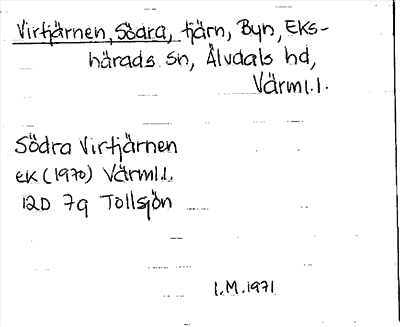 Virtjärnen, Södra, tjärn, Byn, Eks-
härads sn, Älvdals hd,
Värml.l.
Södra Virtjärnen
EK (1970) Värml.l.
12D 7g Tollsjön
I.M. 1971